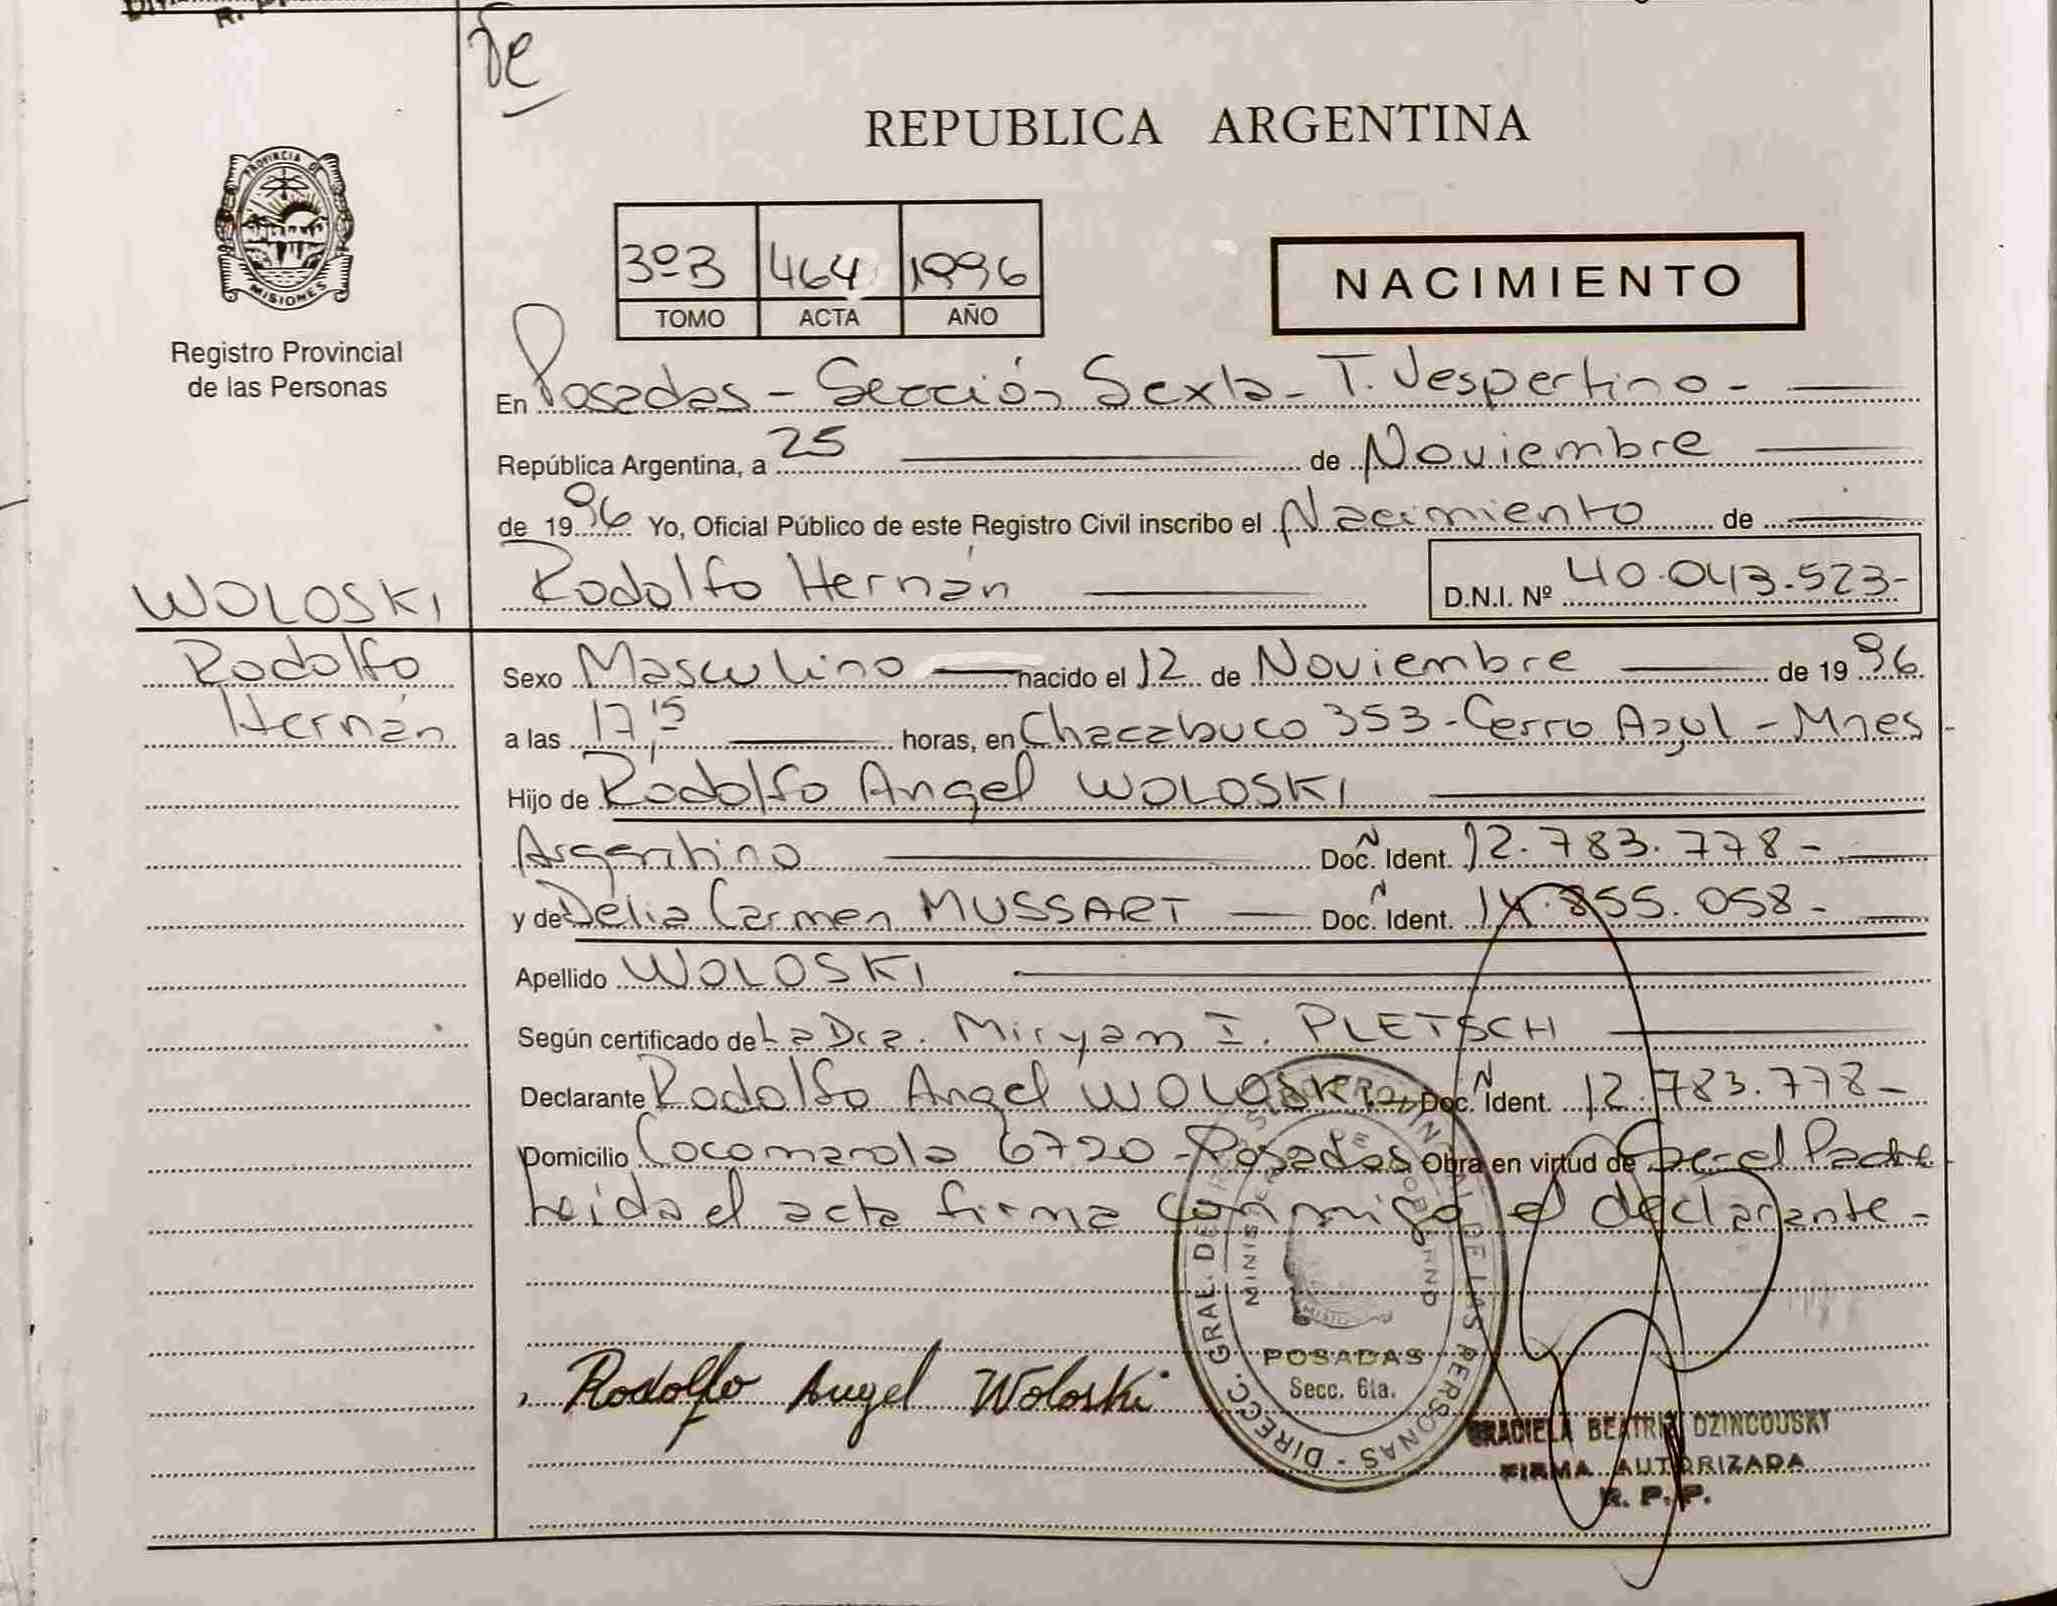 REPUBLICA ARGENTINA
PROVINCIA DE
MISIONES
Registro Provincial
de las Personas
3º B 464 1996
TOMO ACTA AÑO
NACIMIENTO
En Posadas - Sección Sexta - T. Vespertino -
República Argentina, a 25 de Noviembre
de 1996 Yo, Oficial Público de este Registro Civil inscribo el Nacimiento de
Rodolfo Hernán D.N.I. Nº 40.043.523-
WOLOSKI
Rodolfo
Hernán
Sexo Masculino nacido el 12 de Noviembre de 1996
a las 17,15 horas, en Chacabuco 353 - Cerro Azul - Mnes -
Hijo de Rodolfo Angel WOLOSKI
Argentino Doc. N Ident. 12.783.778 -
y de Delia Carmen MUSSART Doc. N Ident. 14.855.058 -
Apellido WOLOSKI
Según certificado de La Dra. Miryam I. PLETSCH
Declarante Rodolfo Angel WOLOSKI Doc. N Ident. 12.783.778 -
Domicilio Cocomarola 6720 - Posadas Obra en virtud de Ser el Padre
Leida el acta firma conmigo el declarante -
Rodolfo Angel Woloski
POSADAS
Secc. 6ta.
GRACIELA BEATRIZ DZINCOUSKY
FIRMA AUTORIZADA
R. P. P.